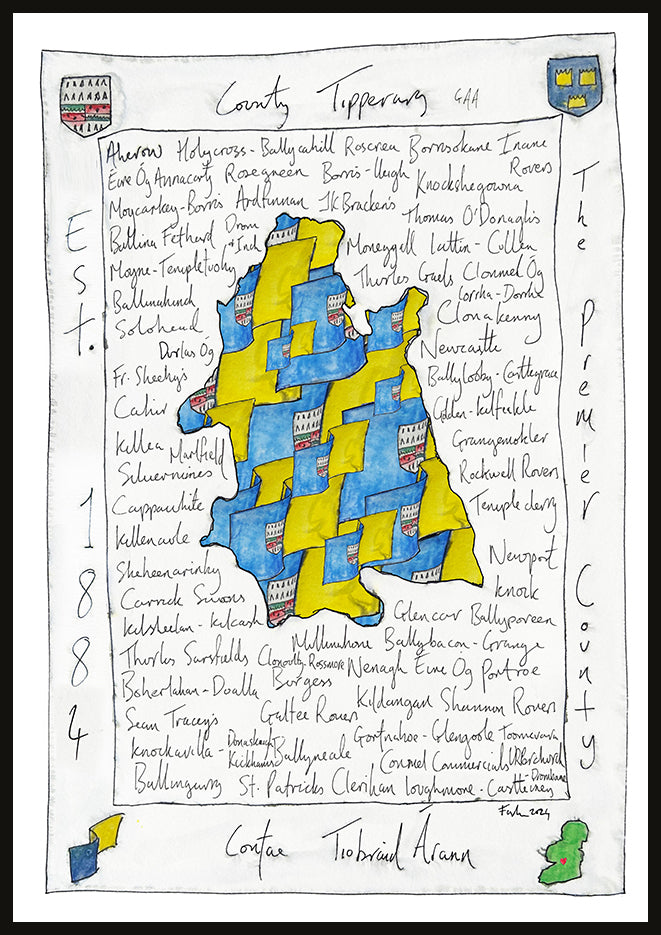 County Tipperary GAA
Aherlow Holycross - Ballycahill Roscrea Borrisokane Inane
Rovers
Éire Óg Annacarty Rosegreen Borris - Ileigh Knockshegowna
Moycarkey - Borris Ardfinnan JK Brackens
Thomas O'Donaghs
Ballina Fethard Drom
& Inch
Moneygall Lattin - Cullen
Moyne - Templetuohy
Thurles Gaels Clonmel Óg
Ballinahinch
Corrha - Dorrha
Solohead
Clonakenny
Durlas Óg
Newcastle
Fr. Sheehy's
Ballylooby - Castlegrace
Cahir
Golden - Kilfeakle
Killea
Marlfield
Grangemockler
Silvermines
Rockwell Rovers
Cappawhite
Templederry
Killenaule
Newport
Sheheenarinky
Knock
Carrick Swans
Glencar Ballyporeen
Kilsheelan - Kilcash
Mullinahone Ballybacon - Grange
Thurles Sarsfields Clonoulty - Rossmore Nenagh Éire Óg Portroe
Boherlahan - Dualla Burgess
Kildangan Shannon Rovers
Sean Tracey's Galtee Rovers
Gortnahoe - Glengoole Toomevara
Knockavilla - Donaskeigh
Kickhams
Ballyneale
Clonmel Commercials
- Drombane
Ballingarry St. Patricks Clerihan Loughmore - Castleiney
2024
Est. 1884
The Premier County
Contae Thiobraid Árann